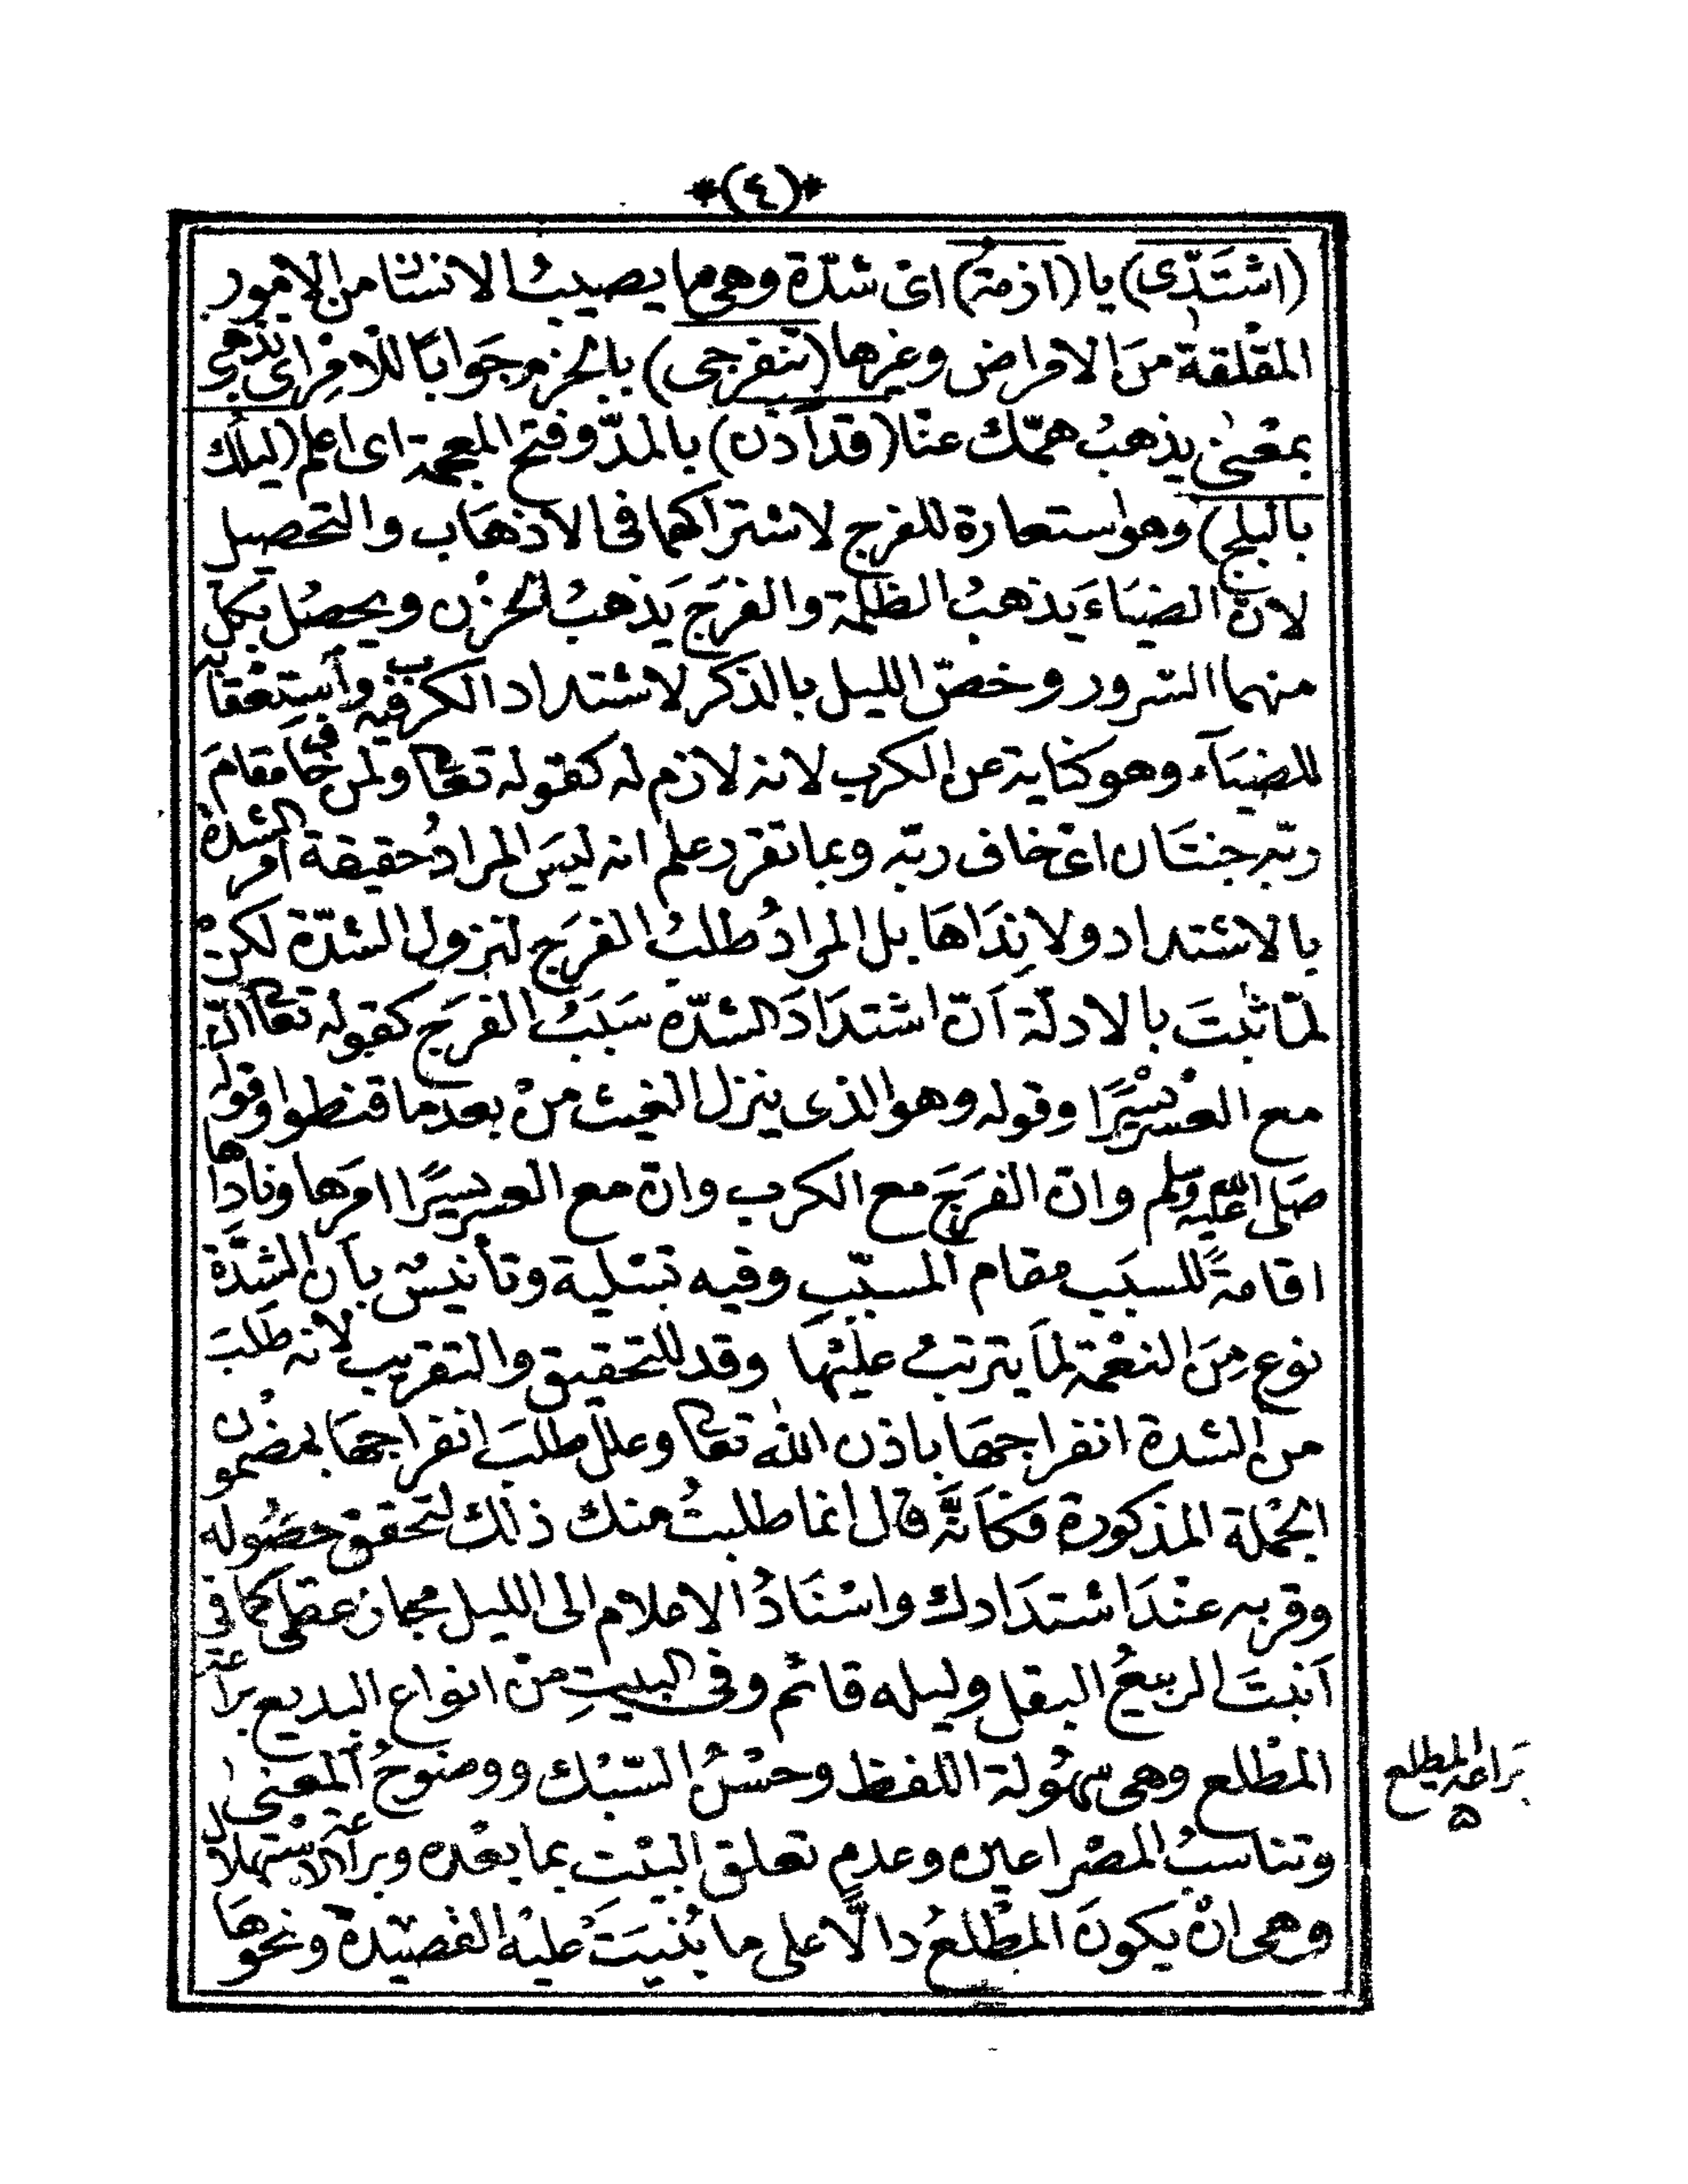 *(٤)*
(اشتَدّى) يا (ازمةُ) اى شدّة وهى ما يصيبُ الانسان من الامور
المقلقة منَ الامراض وغيرها (تنفرجى) بالجزم جَوابًا للامِر اى تذهبى
بمعْنىٰ يذهبُ همّك عنّا (قد آذن) بالمدّ وفتح المعجمة اى اعلم (ليلُك
بالبلج) وهو استعارة للفرج لاشتراكهما فى الاذهَاب والتحصيل
لانّ الضيَاءَ يذهبُ الظلمة والفرَج يَذهبُ الحزن ويحصُل بكلّ
منهما السرور وخصّ الليل بالذكر لاشتداد الكرب فيه وأستعقابه
للضيَآء وهو كناية عن الكرب لانه لازم له كقوله تعالى ولمن خاف مقامَ
ربّه جنتَان اى خاف ربّه وبما تقرر علم انه ليسَ المرادُ حقيقة امر الشدة
بالاشتداد ولا نِدَاهَا بل المرادُ طلبُ الفرَج لتزول الشدّة لكنْ
لمّا ثبتَ بالادلّة اَنّ اشتدَادَ الشدّه سَبَبُ الفرَج كقوله تعالى انّ
مع العُسْر يُسْرًا وقوله وهو الذى ينزل الغيث منْ بعد ما قنطوا وقوله
صَلى الله عليه وسلم وانّ الفرَجَ مع الكرب وانّ مع العسر يسرًا امرَها وناداها
اقامةً للسبَب مقام المسبّب وفيه تسْلية وتأنيسٌ بأن الشدَّة
نوع مِنَ النعْمة لمَا يترتبُ عليْهَا وقد للتحقيق والتقريب لانه طَلبَ
من الشدة انفراجهَا باذن الله تعالى وعلل طلبَ انفراجهَا بمضمون
الجمْلة المذكورة فكأَنَّه قال انما طلبتُ منك ذلك لتحقق حصُوله
وقربه عنْدَ اشتدَادك واسْنَادُ الاعلام الى الليل مجاز عقلى كما فى
اَنبتَ الربيعُ البقل وليله قائم وفى البيتِ منْ انواع البديع برَاعَة
المطْلع وهى سهُولة اللفظ وحسْنُ السّبْك ووضوحُ المعنىٰ
وتناسبُ المصْراعين وعدم تعلق البيْت بما بعْده وبراعة الاسْتهلال
وهى انْ يكونَ المطْلعُ دالًّا على ما بُنيَتْ عليْه القصيْدة ونحوهَا
بَراعة المطلع